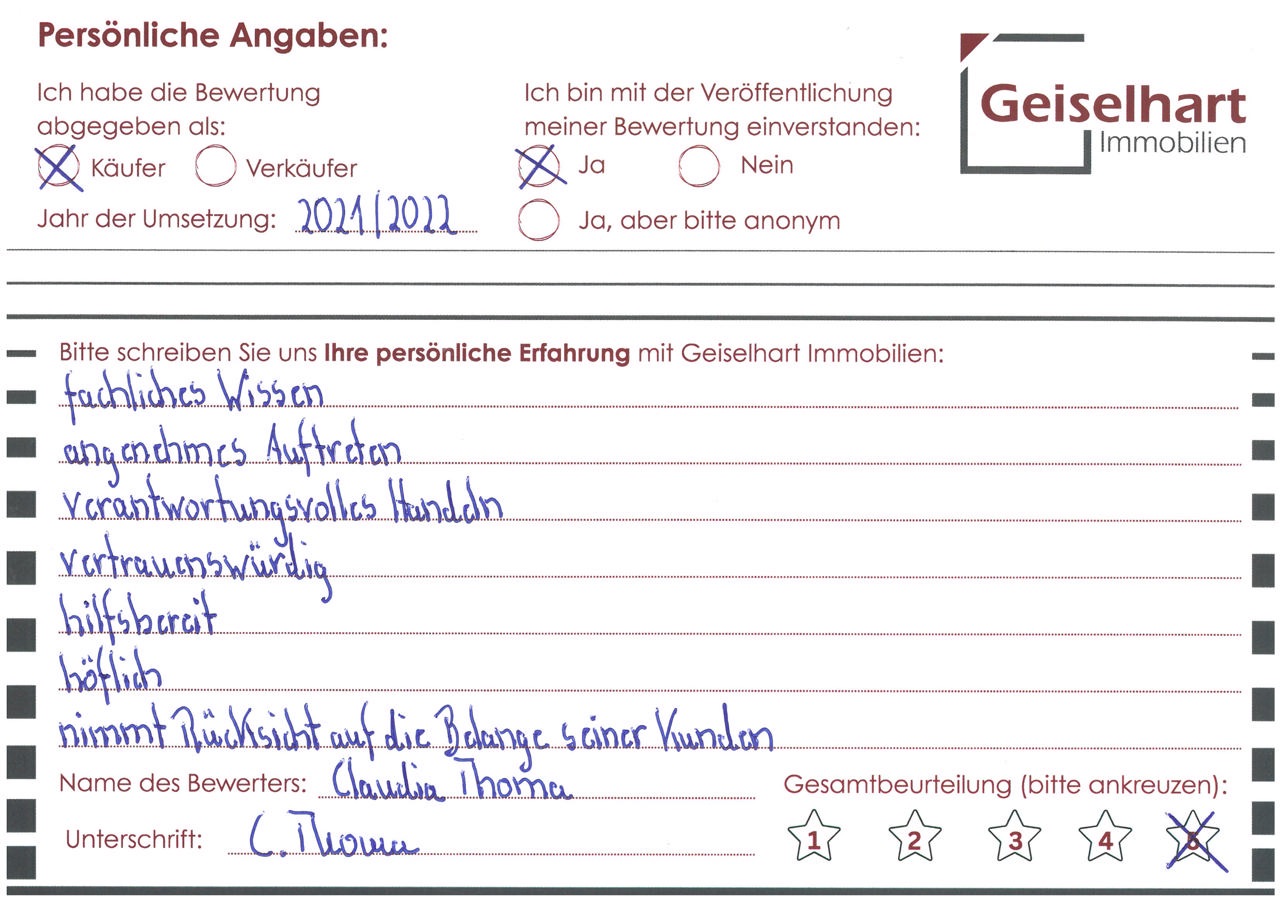 Persönliche Angaben:
Geiselhart
Immobilien
Ich habe die Bewertung
abgegeben als:
Käufer Verkäufer
Jahr der Umsetzung: 2021/2022
Ich bin mit der Veröffentlichung
meiner Bewertung einverstanden:
Ja Nein
Ja, aber bitte anonym
Bitte schreiben Sie uns Ihre persönliche Erfahrung mit Geiselhart Immobilien:
fachliches Wissen
angenehmes Auftreten
verantwortungsvolles Handeln
vertrauenswürdig
hilfsbereit
höflich
nimmt Rücksicht auf die Belange seiner Kunden
Name des Bewerters: Claudia Thoma
Unterschrift: C. Thoma
Gesamtbeurteilung (bitte ankreuzen):
1 2 3 4 5